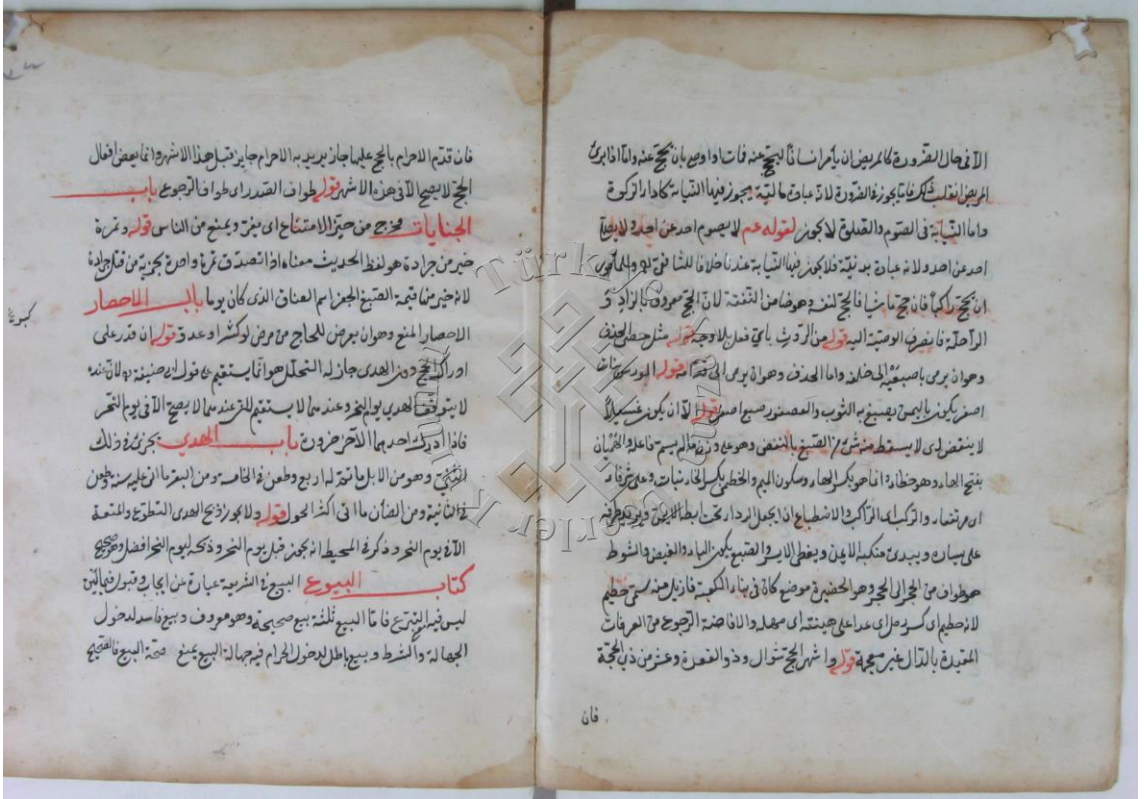 الا فى حال الضرورة كالمريض ان يأمر انسانا ليحج عنه فمات او اوصى بان يحج عنه واما اذا برئ
المريض انقلب ذلك لانما يجوز فى الضرورة لانه عبادة مالية يجوز فيها النيابة كاداء الزكوة
واما النيابة فى الصوم والصلوة لا يجوز لقوله عم لا يصوم احد عن احد ولا يصلى
احد عن احد ولانه عبادة بدنية فلا يجوز فيها النيابة عندنا خلافا للشافعى
ان يحج راكبا فان حج ماشيا فالحج لنفسه وهو ضامن النفقة لان الحج معروف بالزاد و
الراحلة فانصرف الوصية اليه قوله من الرفث باى فعل بلا وجه قوله مثل حصى الخذف
وهو ان يرمى باصبعيه الى خلفه واما الحذف وهو ان يرمى الى قدامه قوله الورس نبات
اصفر يكون باليمن يصبغ به الثوب والعصفور صبغ اصفر قوله الا ان يكون غسيلا
لا ينفض اى لا يسقط منه شئ من الصبغ بالنفض وهو على وزن ما لم يسم فاعله والهميان
بفتح الهاء وهو خطاء وانما هو بكسر الهاء وسكون الميم والخطمى بكسر الخاء نبات وعلى شرفا
اى مرتفعا والركب اى الراكب والاضطباع اذا يجعل الرداء تحت ابطه الايمن ويرد طرفه
على يساره ويبدى منكبه الايمن ويغطى الايسر والضبع بسكون الباء والشوط
هو طواف من الحجر الى الحجر وهو الحضيرة موضع كان فى بناء الكعبة فازيل منه يسمى حطيم
لانه حطيم اى كسر على هينته اى مهله والافاضة الرجوع من العرفات
المقيدة بالدال غير معجمة قوله واشهر الحج شوال وذو القعدة وعشر من ذى الحجة
فان
فان قدم الاحرام بالحج عليها جاز يريد به الاحرام جايز قبل هذا الاشهر وانما بعض افعال
الحج لا يصح الا فى هذه الاشهر قوله طواف الصدر اى طواف الرجوع باب
الجنايات مخرج من حيز الامتناع اى يفر ويمنع من الناس قوله وتمرة
خير من جرادة هو لفظ الحديث معناه اذا تصدق تمرة واحدة يجزيه من قتل جرادة
لانه خير من قيمة الضبع اسم العناق الذى كان يوما باب الاحصار
الاحصار المنع وهو ان يعرض للحاج من مرض او كسر او عدو قوله ان قدر على
ادراك الحج دون الهدى جاز له التحلل هو انما يستقيم على قول ابى حنيفة رح لان عنده
لا يتوقف الهدى يوم النحر وعندهما لا يستقيم لان عندهما لا يصح الا فى يوم النحر
فاذا ادرك احدهما الآخر ضرورة باب الهدى يجزئ فى ذلك
الثنى وهو من الابل ما تمة له اربع وطعن فى الخامسة ومن البقر ما اتى عليه سنة وطعن
فى الثانية ومن الضأن ما اتى اكثر الحول قوله ولا يجوز ذبح الهدى التطوع والمتعة
الا فى يوم النحر وذكر فى المحيط انه يجوز قبل يوم النحر وذبحه ليوم النحر افضل وهو صحيح
كتاب البيوع البيع فى الشريعة عبارة عن ايجاب وقبول فى مالين
ليس فيه التبرع فاما البيع ثلثة بيع صحيحة وهو معروف وبيع فاسد لدخول
الجهالة والشرط وبيع باطل لدخول الحرام فيه جهالة البيع يمنع صحة البيع فالصحيح
Türkiye Yazma Eserler Kurumu